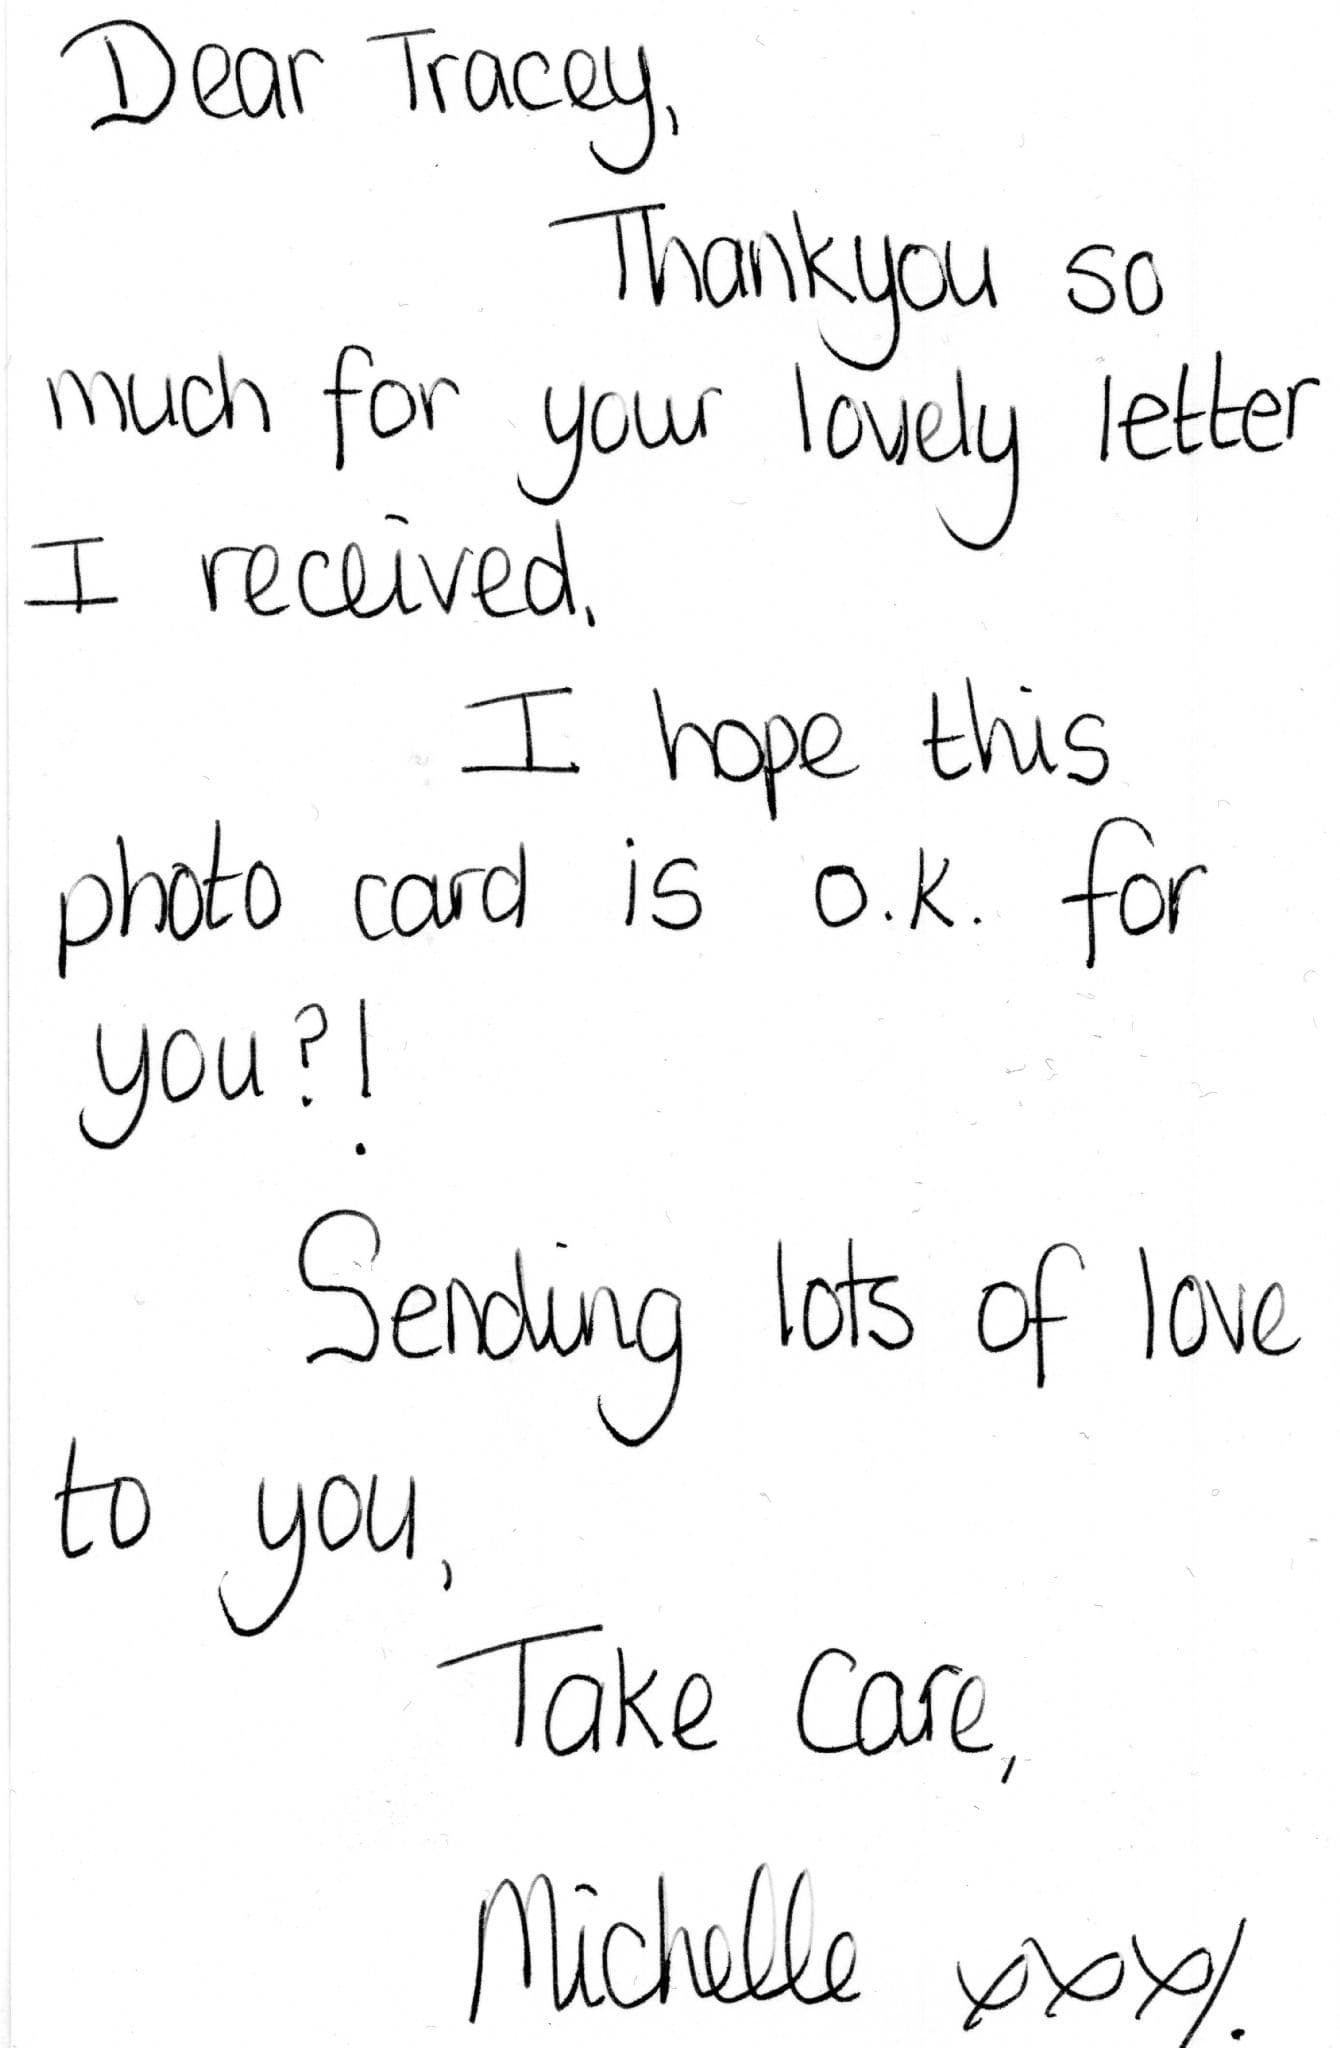 Dear Tracey,
Thankyou so
much for your lovely letter
I received.
I hope this
photo card is o.k. for
you?!
Sending lots of love
to you,
Take Care,
Michelle xxx/.